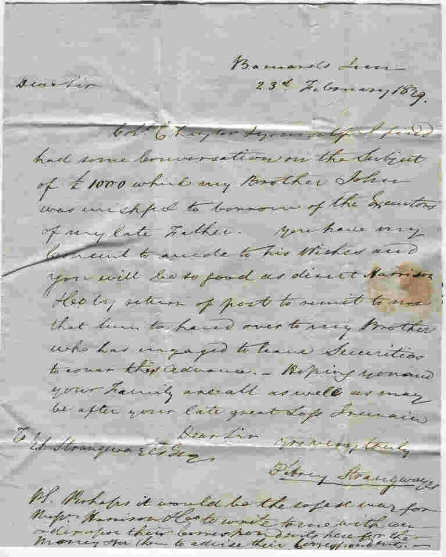 Barnards Inn
23d February 1829.
Dear Sir
Col. Chaytor & myself
had some Conversation on the Subject
of £1000 which my Brother John
was wishful to borrow of the Executors
of my late Father. You have my
Consent to accede to his Wishes and
you will be so good as direct Harrison
&Co by return of post to remit to me
that Sum to hand over to my Brother
who has engaged to leave Securities
to cover this advance. - Hoping you and
your Family are all as well as may
be after your late great Loss I remain
Dear Sir
yours very truly
To E. Strangwayes Esq
Strangwayes
PS. Perhaps it would be the safest way for
Messrs Harrison &Co to write to me with an
order for their correspondents here for the
Money & then to advise their Correspondents